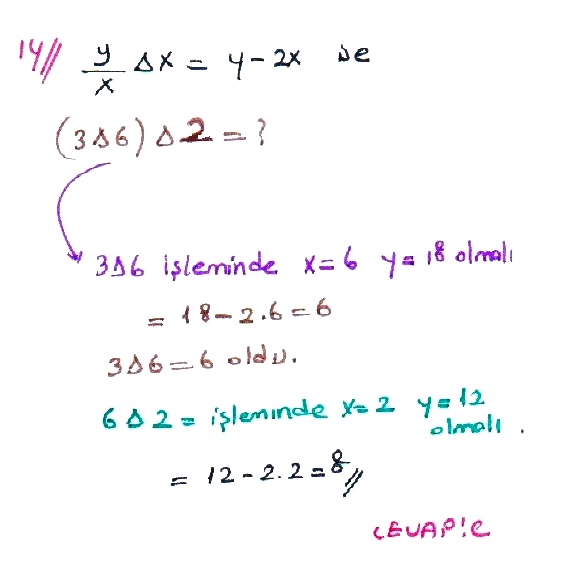 14// y/x Δ x = y - 2x ise
(3Δ6) Δ 2 = ?
3Δ6 işleminde x=6 y=18 olmalı
= 18 - 2.6 = 6
3Δ6 = 6 oldu.
6Δ2 = işleminde x=2 y=12 olmalı.
= 12 - 2.2 = 8//
CEVAP: C